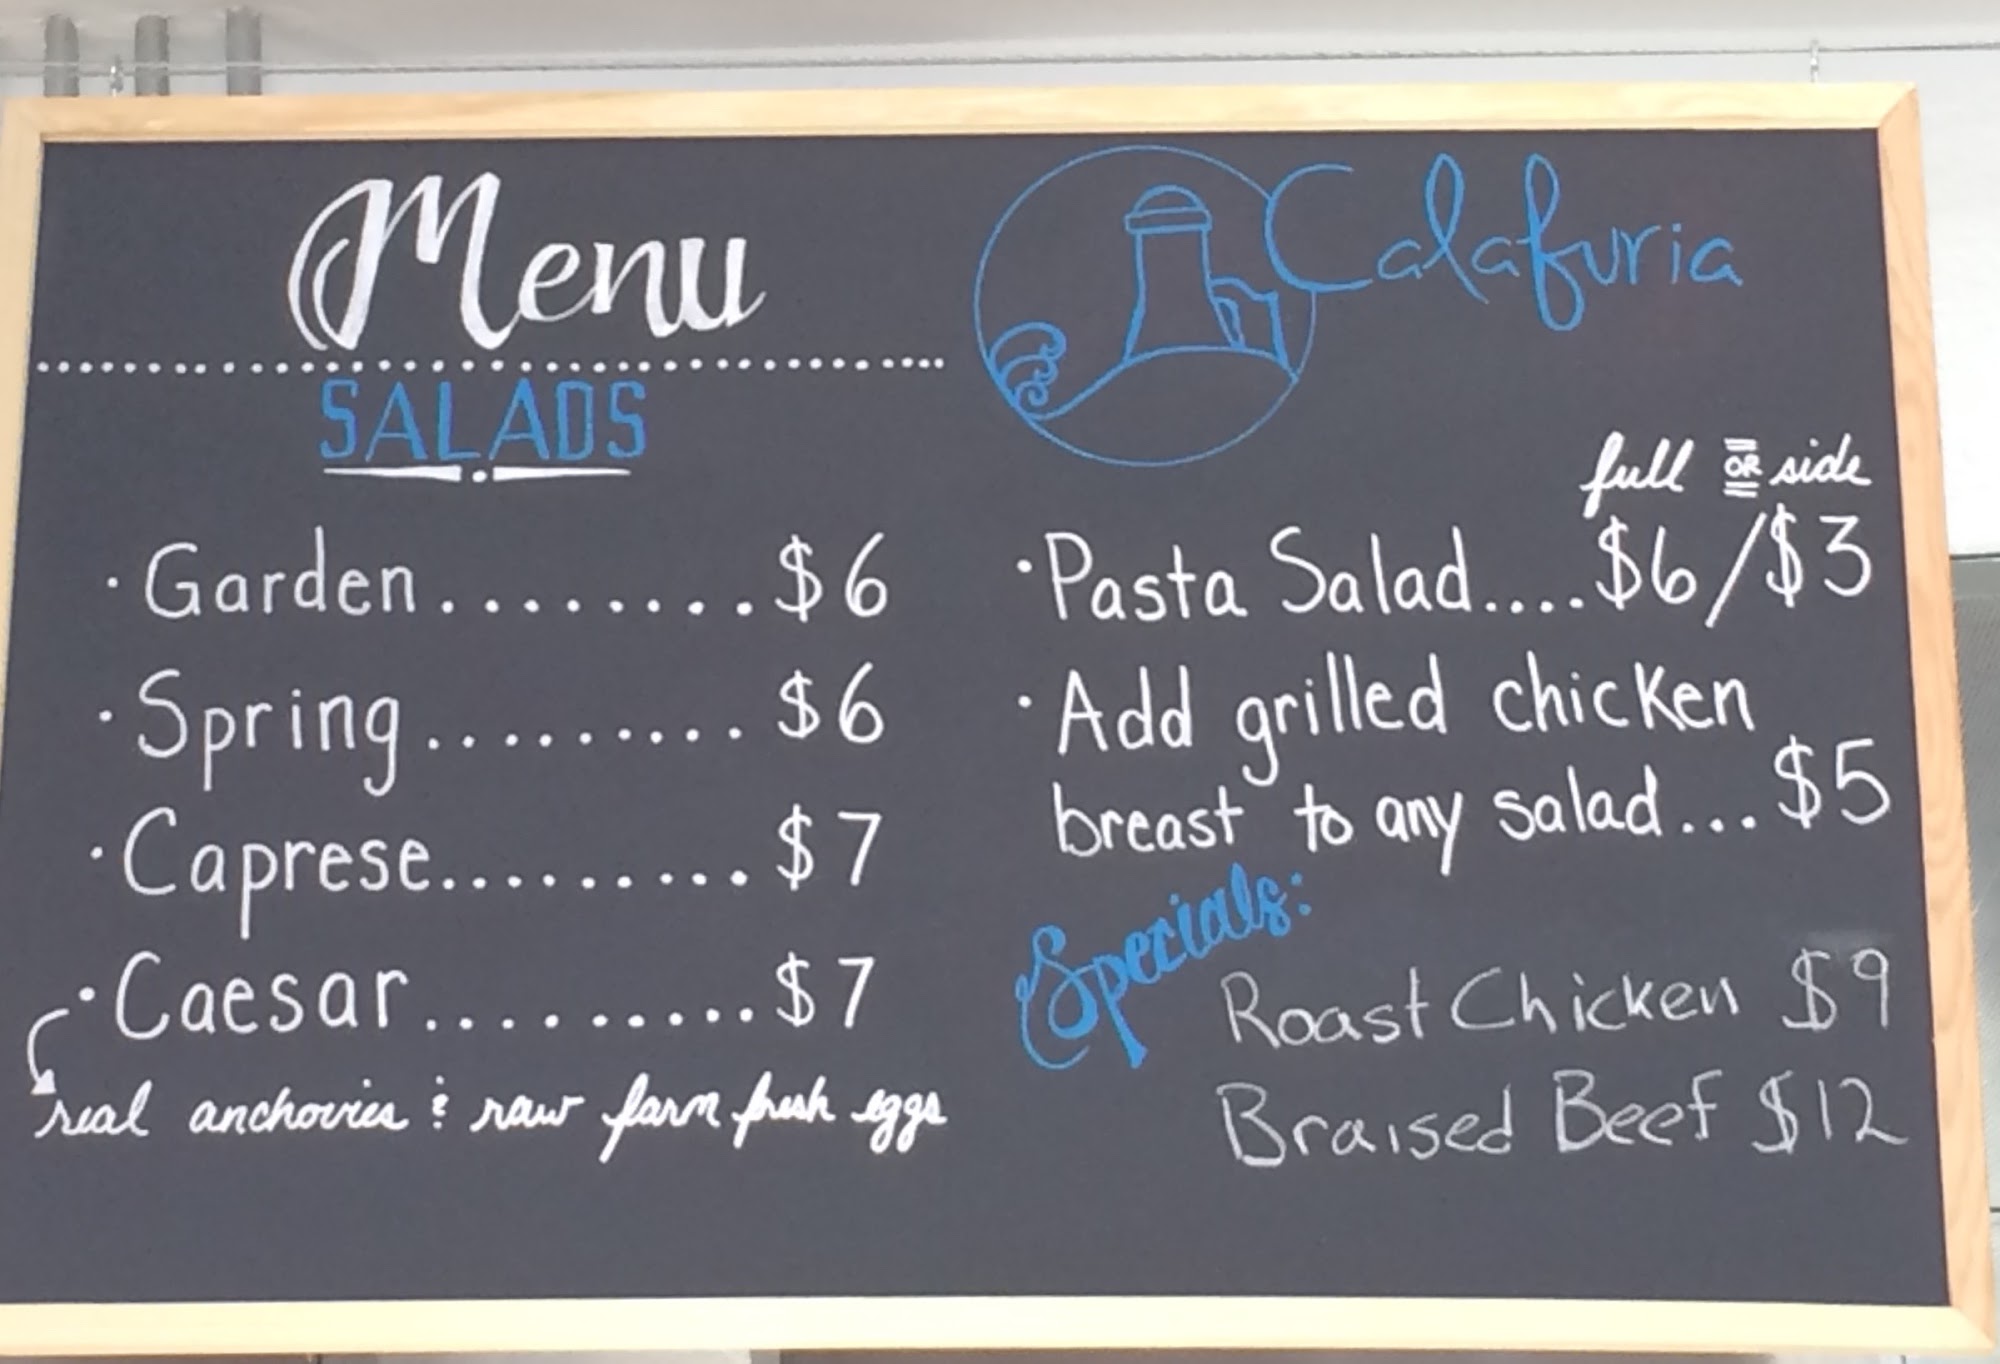 Menu
SALADS
· Garden........$6
· Spring..........$6
· Caprese..........$7
· Caesar..........$7
real anchovies & raw farm fresh eggs
Calafuria
full OR side
· Pasta Salad....$6/$3
· Add grilled chicken
breast to any salad...$5
Specials:
Roast Chicken $9
Braised Beef $12